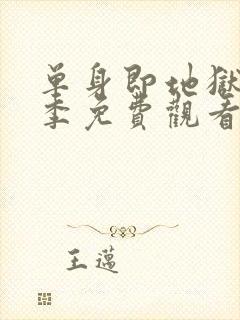 单身即地獄
季免費觀看
王邁